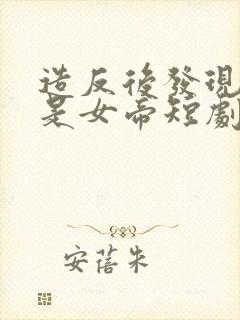 造反後發現
是女帝短劇
安蓓朱